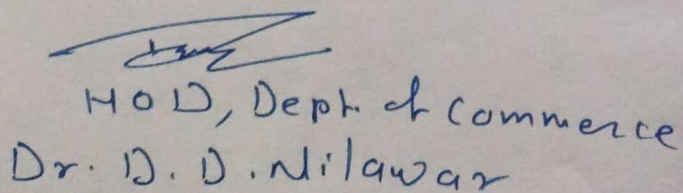 HOD, Dept. of Commerce
Dr. D. D. Nilawar